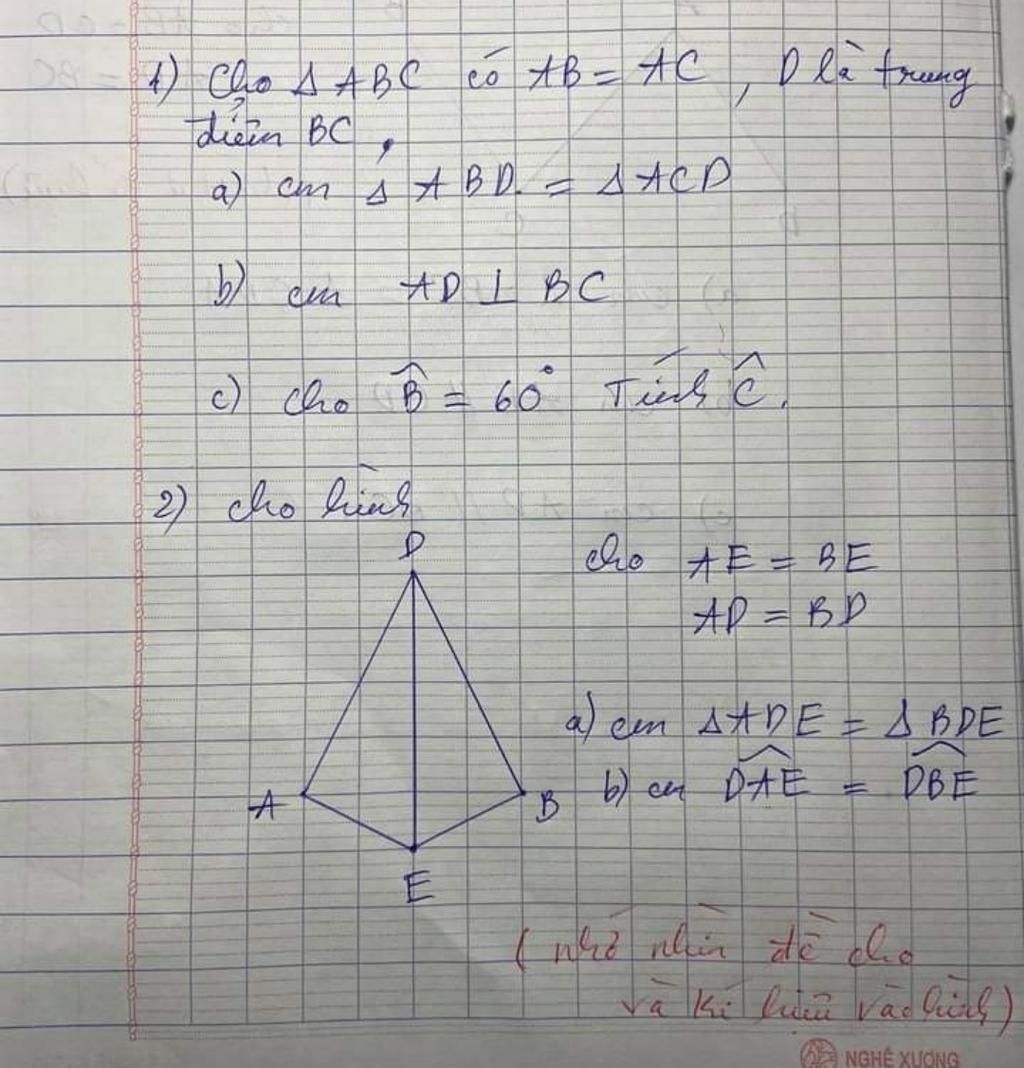 1) Cho Δ ABC có AB = AC , D là trung
điểm BC ,
a) cm Δ ABD = Δ ACD
b) cm AD ⊥ BC
c) cho B̂ = 60° Tính Ĉ.
2) cho hình
D
cho AE = BE
AD = BD
a) cm Δ ADE = Δ BDE
A
B
b) cm \widehat{DAE} = \widehat{DBE}
E
( nhớ nhìn đề cho
và kí hiệu vào hình )
NGHÊ XƯƠNG